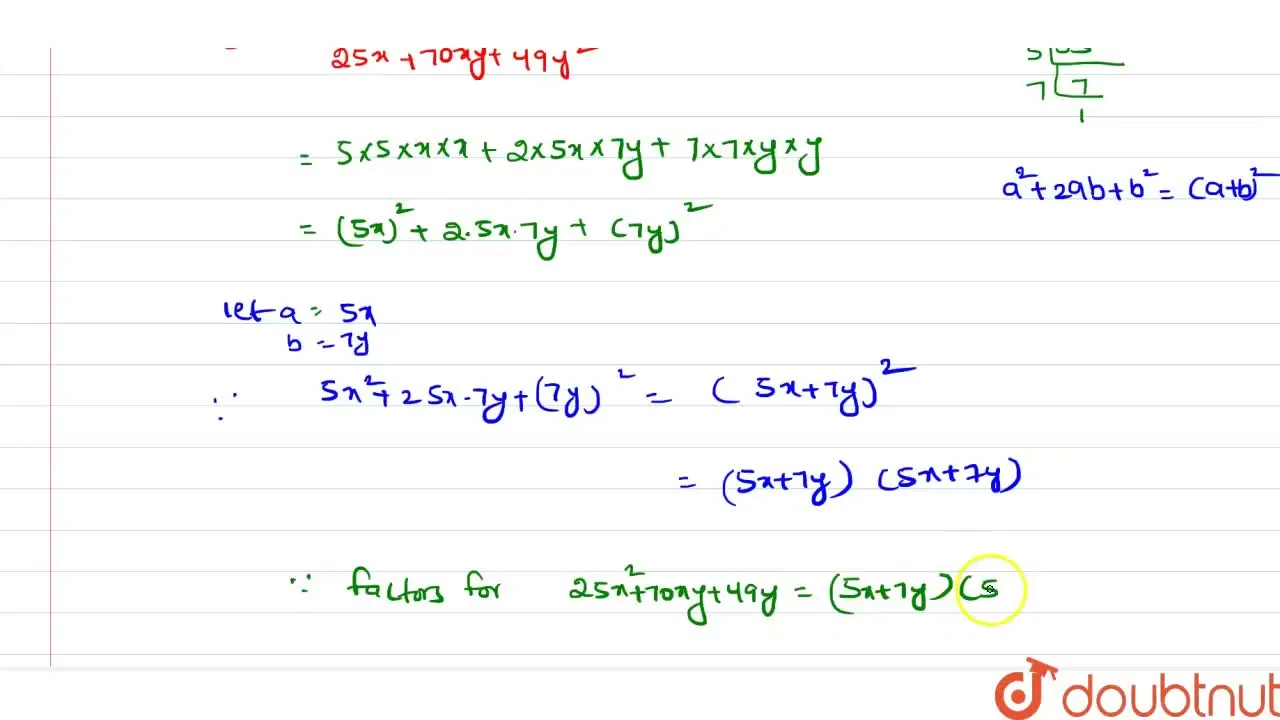 25x + 70xy + 49y²
5
7 7
1
= 5×5×x×x + 2×5x×7y + 7×7×y×y
a²+2ab+b² = (a+b)²
= (5x)² + 2·5x·7y + (7y)²
let a = 5x
b = 7y
∵ 5x²+2 5x·7y+(7y)² = (5x+7y)²
= (5x+7y) (5x+7y)
∵ factors for 25x²+70xy+49y = (5x+7y)(5
doubtnut